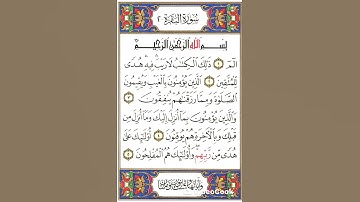 سُورَةُ الْبَقَرَة ٢
بِسْمِ اللهِ الرَّحْمٰنِ الرَّحِيمِ
الٓمٓ ﴿١﴾ ذٰلِكَ الْكِتَابُ لَا رَيْبَ فِيهِ هُدًى
لِلْمُتَّقِينَ ﴿٢﴾ الَّذِينَ يُؤْمِنُونَ بِالْغَيْبِ وَيُقِيمُونَ
الصَّلٰوةَ وَمِمَّا رَزَقْنَاهُمْ يُنْفِقُونَ ﴿٣﴾
وَالَّذِينَ يُؤْمِنُونَ بِمَا أُنْزِلَ إِلَيْكَ وَمَا أُنْزِلَ مِنْ
قَبْلِكَ وَبِالْآخِرَةِ هُمْ يُوقِنُونَ ﴿٤﴾ أُولٰئِكَ عَلٰى
هُدًى مِنْ رَبِّهِمْ وَأُولٰئِكَ هُمُ الْمُفْلِحُونَ ﴿٥﴾
VideoCook